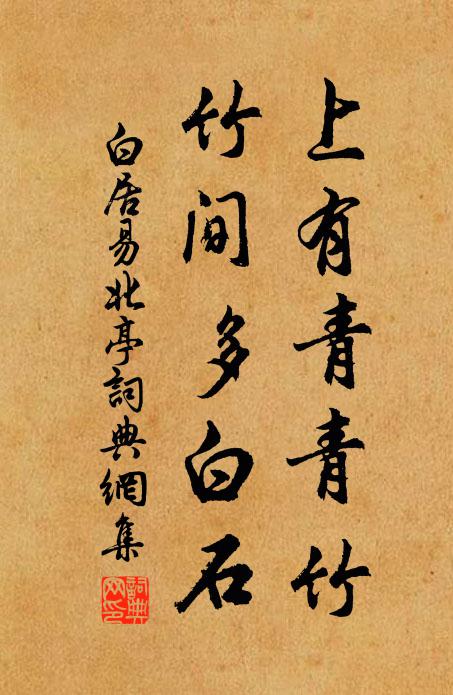 上有青青竹
竹间多白石
白居易北亭詞典網集
詞典网印